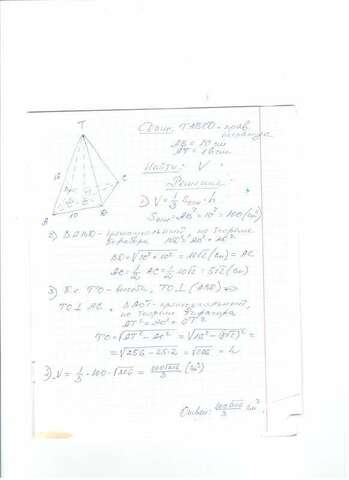 T
16
C
10
B
Дано: TABCD - прав.
пирамида
AB = 10 см
AT = 16 см
Найти: V
Решение
1) V = 1/3 Sосн · h
Sосн = AB² = 10² = 100 (см²)
2) Δ ABD - прямоугольный, по теореме
Пифагора
BD = √10² + 10² = 10√2 (см) = AC
AO = 1/2 AC = 1/2 10√2 = 5√2 (см)
3) Т.к. TO - высота, TO ⊥ (ABC) ⇒
TO ⊥ AC. Δ AOT - прямоугольный,
по теореме Пифагора
AT² = AO² + OT²
TO = √AT² - AO² =
= √256 - 25·2 = √206 = h
V = 1/3 · 100 · √206 = 100√206/3 (см³)
Ответ: 100√206/3 см³.